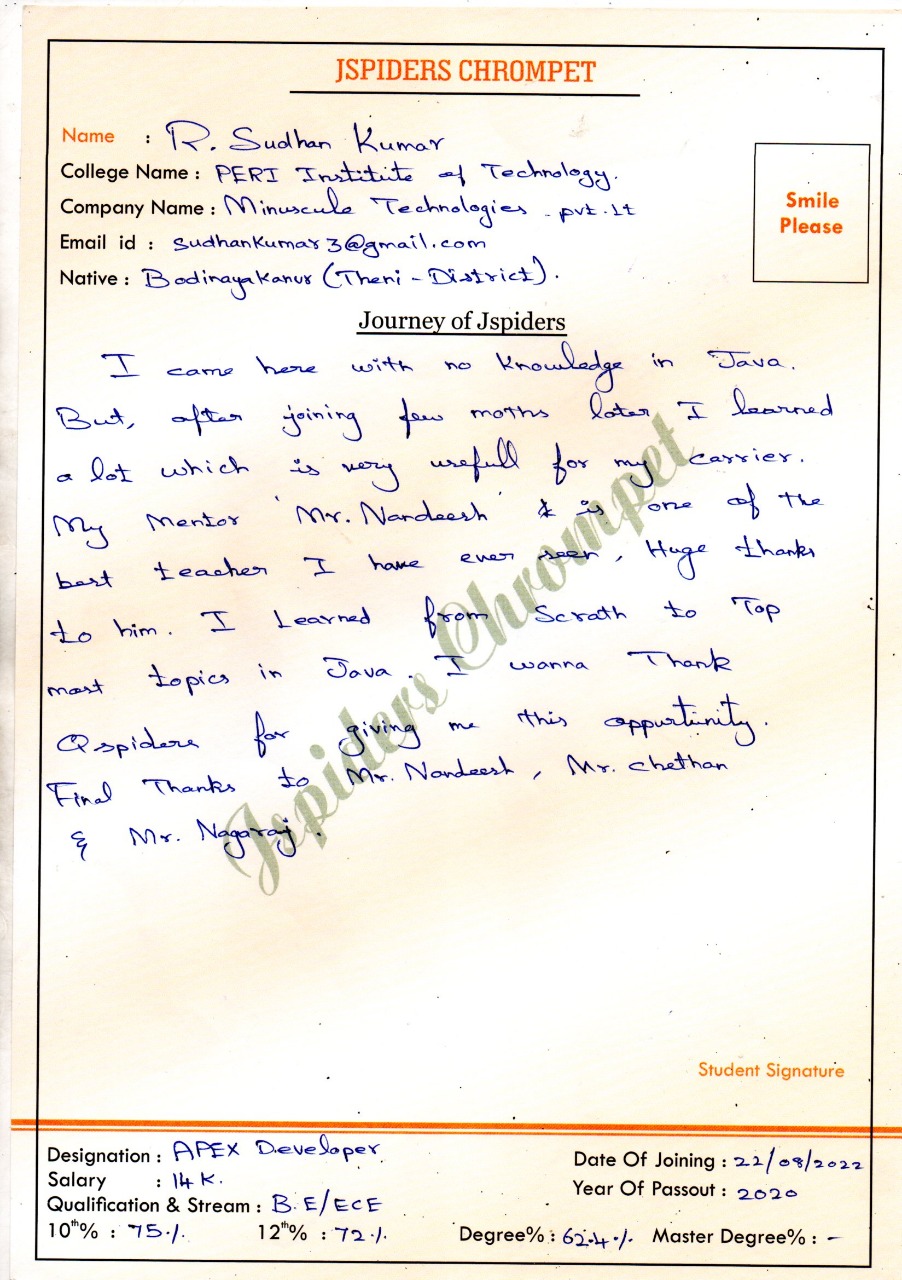 JSPIDERS CHROMPET
Name : R. Sudhan Kumar
College Name : PERI Institute of Technology.
Company Name : Minuscule Technologies pvt. lt
Email id : sudhankumar3@gmail.com
Native : Bodinayakanur (Theni - District).
Smile
Please
Journey of Jspiders
I came here with no knowledge in Java.
But, after joining few moths later I learned
a lot which is very usefull for my carrier.
My Mentor 'Mr. Nandeesh' & is one of the
best teacher I have ever seen, Huge thanks
to him. I Learned from Scrath to Top
most topics in Java. I wanna Thank
Qspiders for giving me this oppurtunity.
Final Thanks to Mr. Nandeesh, Mr. Chethan
& Mr. Nagaraj.
Jspiders Chrompet
Student Signature
Designation : APEX Developer
Date Of Joining : 22/08/2022
Salary : 14 K.
Year Of Passout : 2020
Qualification & Stream : B.E/ECE
10th% : 75%. 12th% : 72%. Degree% : 62.4% Master Degree% : -